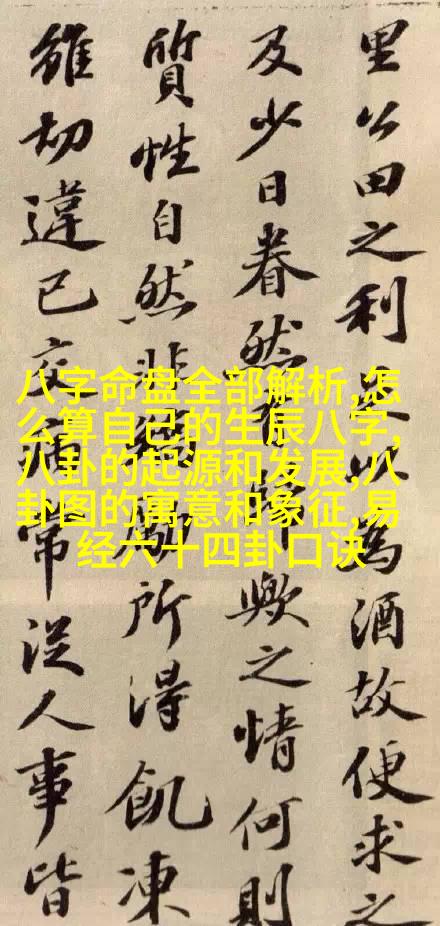 里公田之利足以為酒故便求之
及少日眷然歟之情何則
質性自然非勵所得飢凍
雖切違已交病常從人事皆
八字命盘全部解析,怎
么算自己的生辰八字,
八卦的起源和发展,八
卦图的寓意和象征,易
经六十四卦口诀